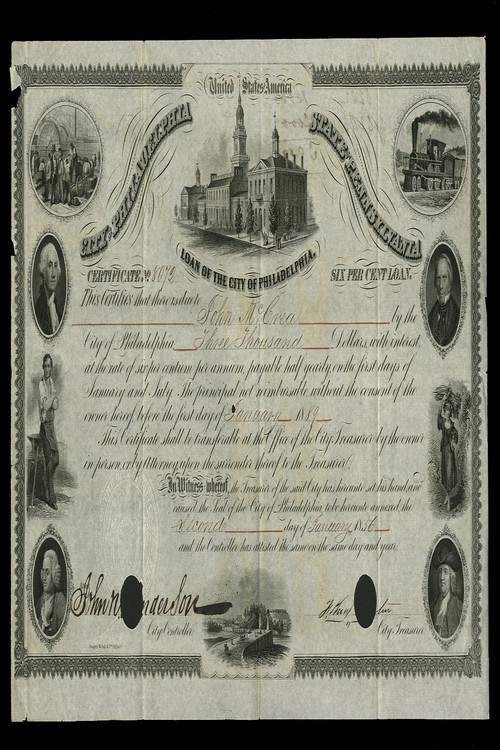 United States America
CITY OF PHILADELPHIA
STATE OF PENNSYLVANIA
LOAN OF THE CITY OF PHILADELPHIA.
CERTIFICATE No
SIX PER CENT LOAN.
This Certifies that there is due to
John McCrea by the
City of Philadelphia Three Thousand Dollars, with interest
at the rate of six per centum per annum, payable half yearly, on the first days of
January and July. The principal not reimbursable without the consent of the
owner hereof before the first day of January 1889
This Certificate shall be transferable at the Office of the City Treasurer by the owner
in person, or by Attorney, upon the surrender thereof to the Treasurer.
In Witness whereof, the Treasurer of the said City has hereunto set his hand, and
caused the Seal of the City of Philadelphia, to be hereunto annexed the
Second day of January 1856
and the Controller has attested the same on the same day and year.
John N. Henderson
City Controller.
City Treasurer.